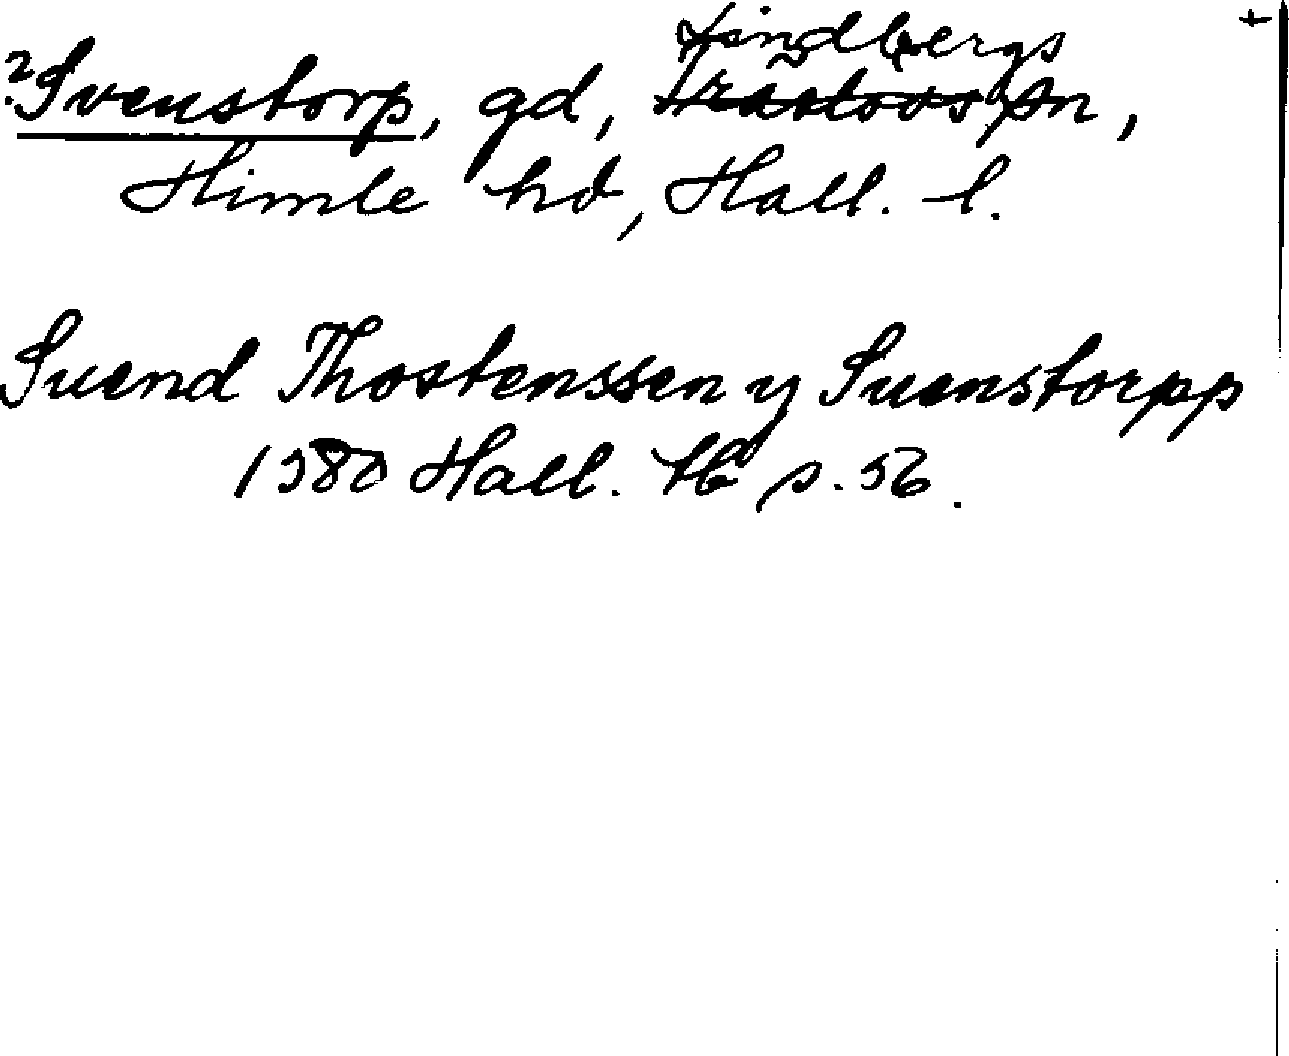 +
?Svenstorp, gd, Lindbergs sn,
Himle hd, Hall. l.
Suend Thostenssen y Suenstorpp
1580 Hall. tb s. 56.